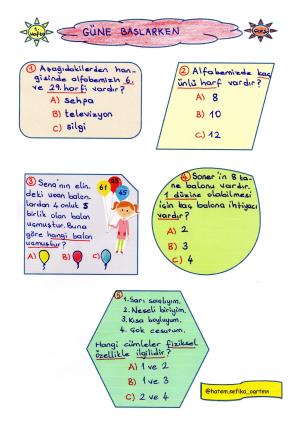 1. hafta
GÜNE BAŞLARKEN
① Aşağıdakilerden han-
gisinde alfabemizin 6.
ve 29. harfi vardır?
A) sehpa
B) televizyon
C) silgi
② Alfabemizde kaç
ünlü harf vardır?
A) 8
B) 10
C) 12
③ Sena'nın elin-
deki uçan balon-
lardan 4 onluk 5
birlik olan balon
uçmuştur. Buna
göre hangi balon
uçmuştur?
A) B) C)
61
45
④ Soner'in 8 ta-
ne balonu vardır.
1 düzine olabilmesi
için kaç balona ihtiyacı
vardır?
A) 2
B) 3
C) 4
⑤
1. Sarı saçlıyım.
2. Neşeli biriyim.
3. Kısa boyluyum.
4. Çok cesurum.
Hangi cümleler fiziksel
özellikle ilgilidir?
A) 1 ve 2
B) 1 ve 3
C) 2 ve 4
@hatem.sefika_ogrtmn